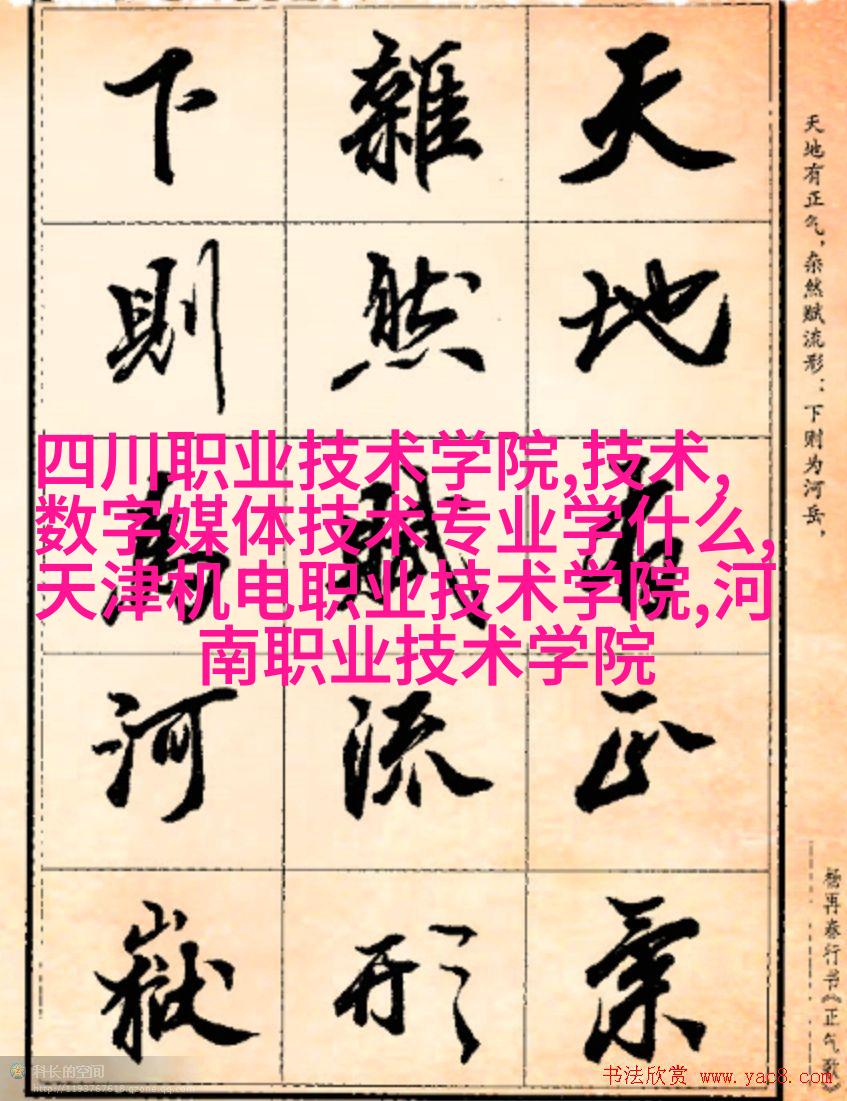 天地有正氣
雜然賦流形
下則為河嶽
天地有正气，杂然赋流形：下则为河岳，
杨再春行书《正气歌》
四川职业技术学院,技术,
数字媒体技术专业学什么,
天津机电职业技术学院,河
南职业技术学院
科长的空间
http://1193767618.qzone.qq.com
书法欣赏 www.yac8.com